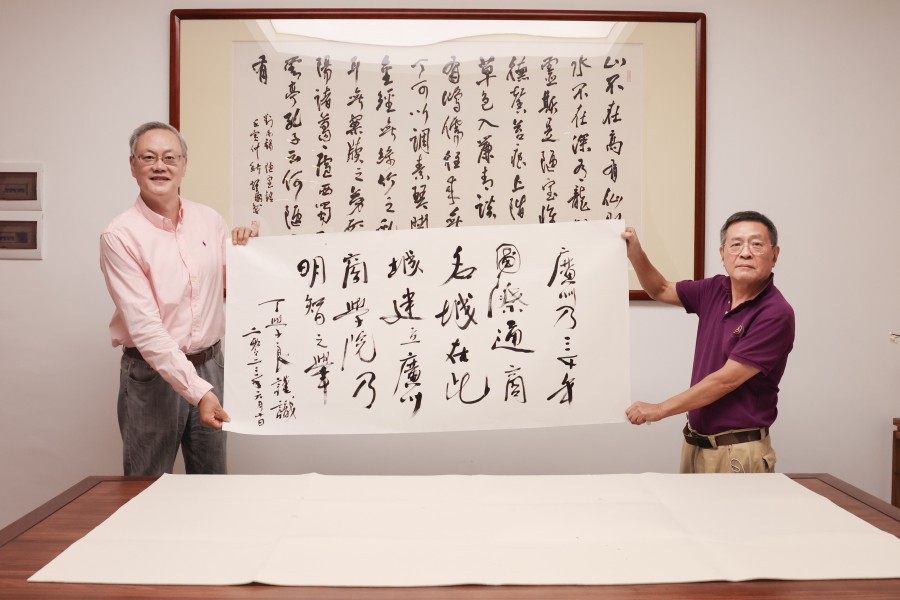 山不在高有仙則
水不在深有龍
靈斯是陋室惟
德馨苔痕上階
草色入簾青談
有鴻儒往來無
丁可以調素琴閱
金經無絲竹之亂
耳無案牘之勞形
陽諸葛廬西蜀
雲亭孔子云何陋
有
劉禹錫陋室銘
壬寅仲秋
廣州乃三千年
國際通商
名城在此
城建立廣州
商學院乃
明智之舉
丁學良謹識
二零二三年六月十日